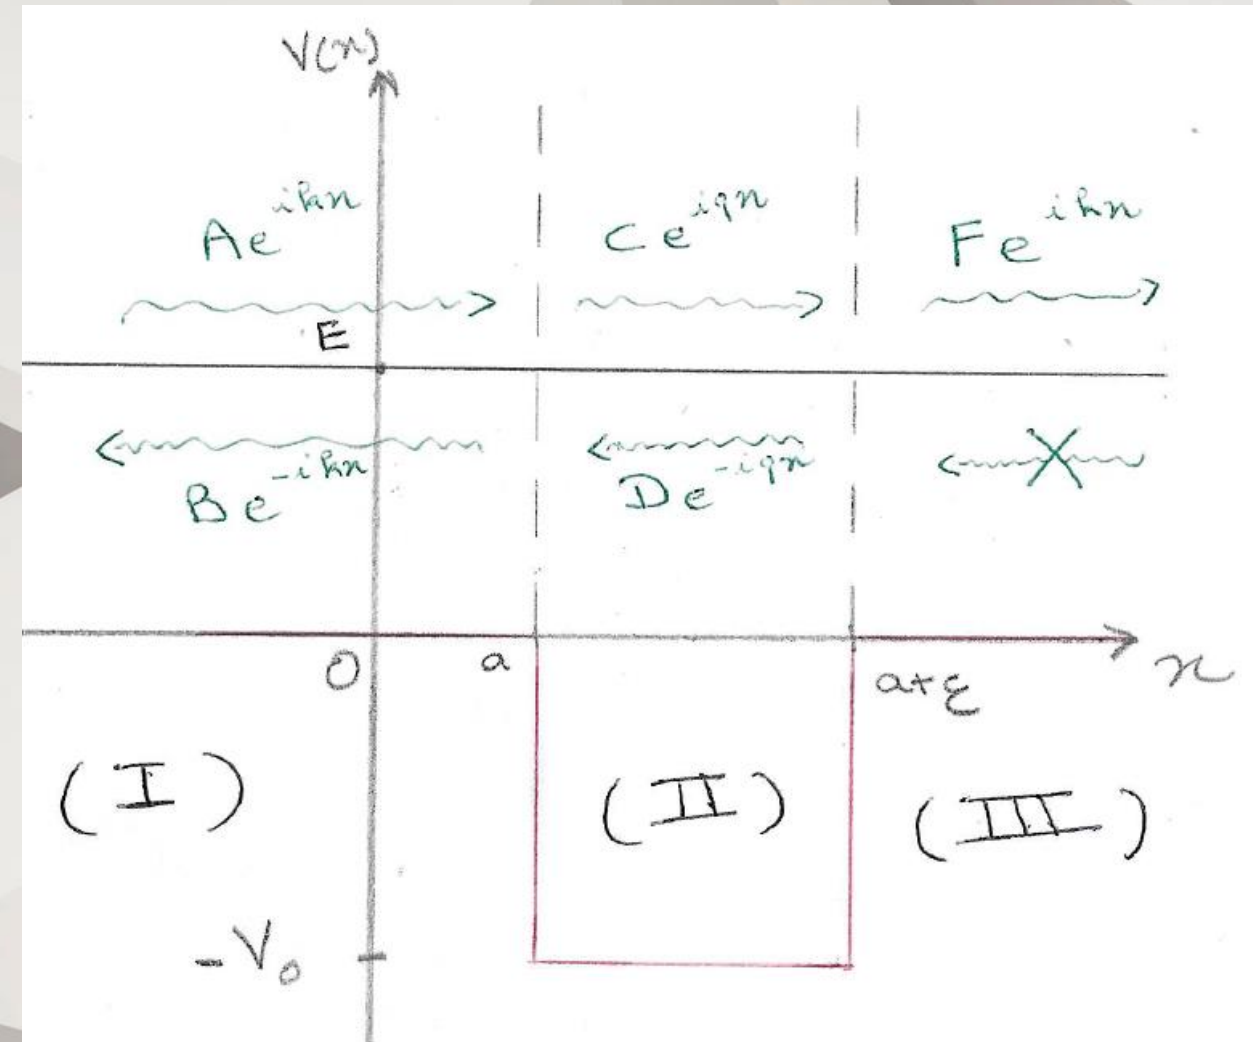 V(x)
Ae^{ikx} Ce^{iqx} Fe^{ikx}
E
Be^{-ikx} De^{-iqx}
0 a a+ε x
(I) (II) (III)
-V₀